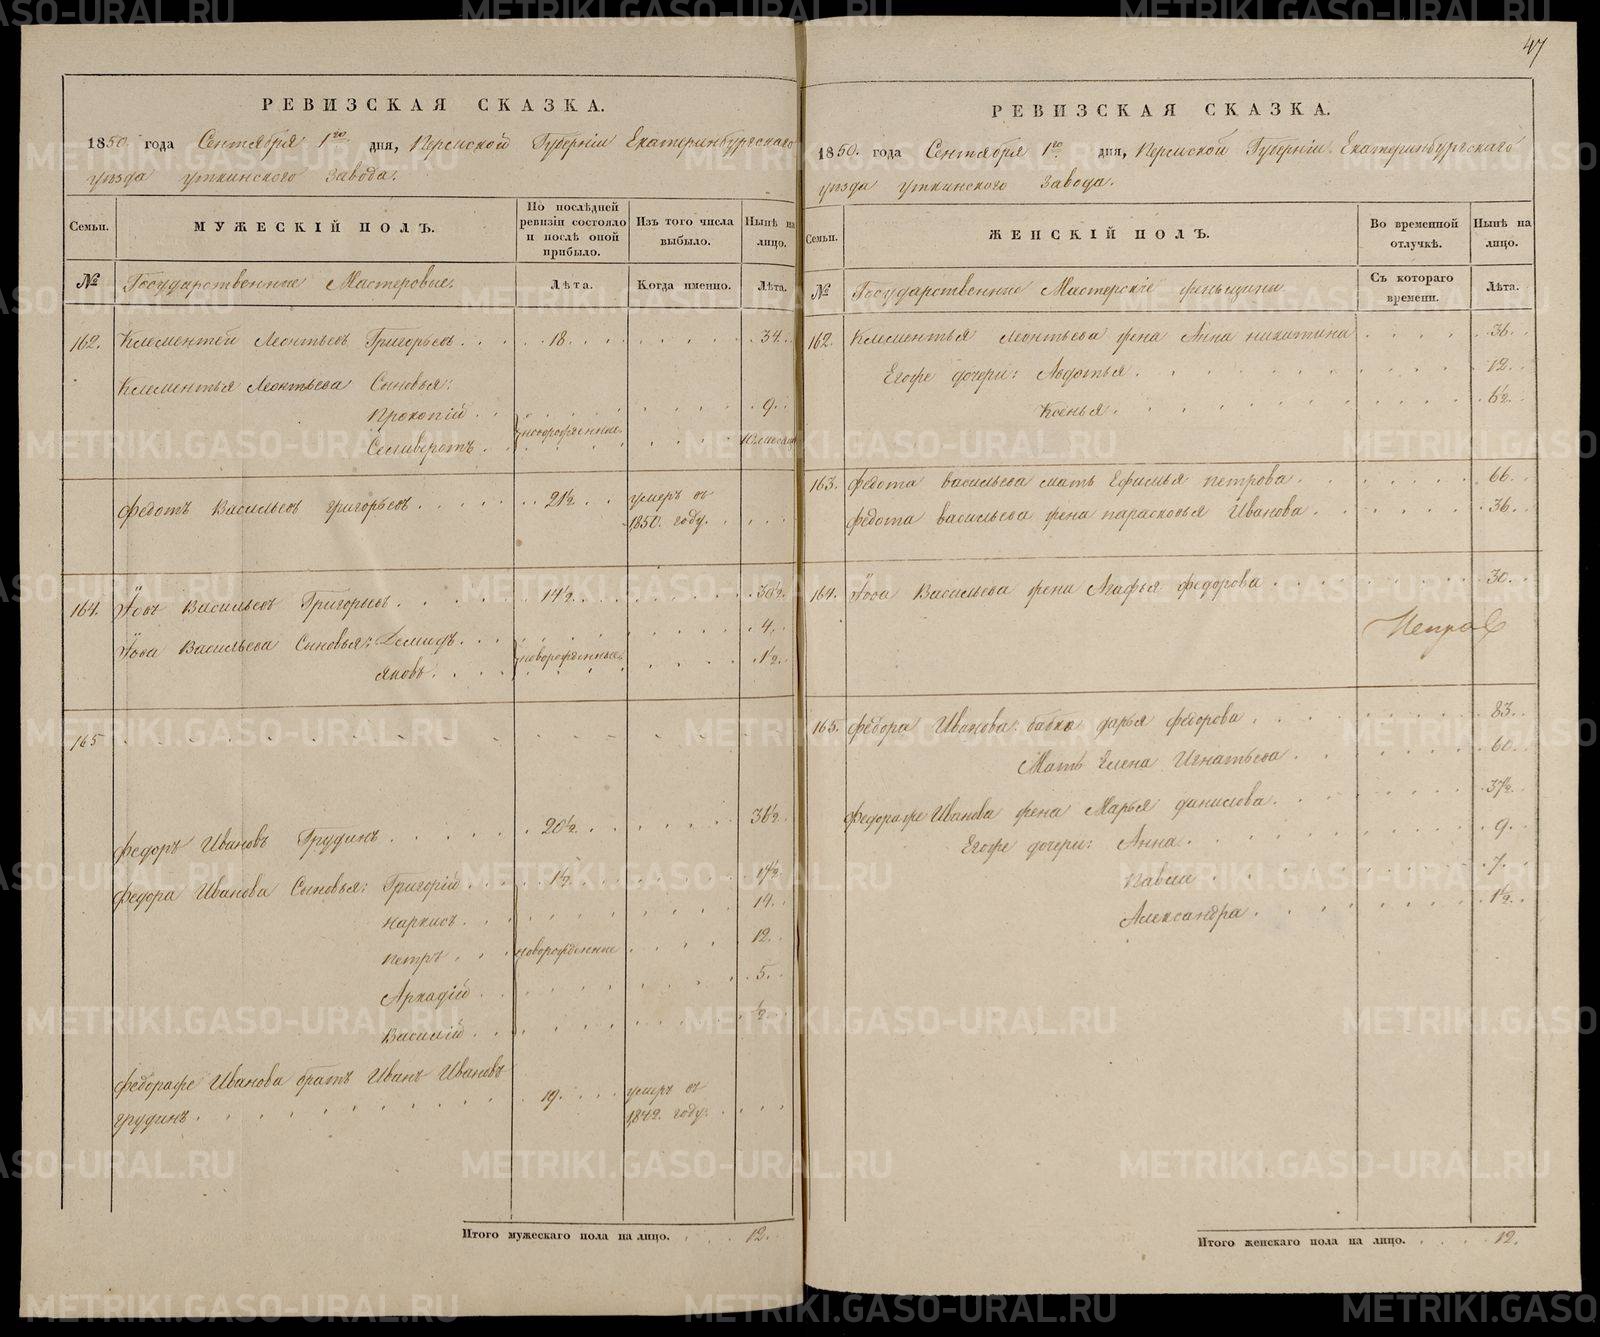 РЕВИЗСКАЯ СКАЗКА.
1850. года Сентября 1го дня, Пермской Губернiи Екатеринбургскаго
уѣзда уткинского Завода.
Семьи.
МУЖЕСКIЙ ПОЛЪ.
По послѣдней ревизiи состояло и послѣ оной прибыло.
Изъ того числа выбыло.
Нынѣ на лицо.
№
Государственные Мастеровые.
Лѣта.
Когда именно.
Лѣта.
162. Клементей Леонтьевъ Григорьевъ . . . 18. . . 34.
Клементья Леонтьева Сыновья:
Прокопiй . . 9.
Селиверстъ . новорожденные 10 месяцов
Федотъ Васильевъ григорьевъ . . . 21½ . . умеръ въ
1850. году.
164. Iовъ Васильевъ Григорьевъ . . . 14½ . . . 30½.
Iова Васильева Сыновья: Демидъ. . . 4.
яковъ. . новорожденные . . 1½.
165
федоръ Ивановъ Грудинъ . . . 20½ . . . 36½
федора Иванова Сыновья: Григорiй . . 1½ . . . 17½
Наркисъ . . 14.
петръ . . новорожденные . . 12.
Аркадiй . . 5.
Василiй . . ½.
федораже Иванова братъ Иванъ Ивановъ
грудинъ . . . 19. . . умеръ въ
1842. году.
Итого мужескаго пола на лицо. . . . 12.
47
РЕВИЗСКАЯ СКАЗКА.
1850. года Сентября 1го. дня, Пермской Губернiи Екатеринбургскаго
уѣзда уткинского Завода.
Семьи.
ЖЕНСКIЙ ПОЛЪ.
Во временной отлучкѣ.
Нынѣ на лицо.
№
Государственные Мастерскiе женьщины
Съ котораго времени.
Лѣта.
162. Клементья леонтьева жена Анна никитина . . . 36.
Егоже дочери: Авдотья . . . 12.
Ксенья . . . 6½.
163. федота васильева мать Ефимья петрова . . . 66.
федота васильева жена парасковья Иванова . . . 36.
164. Iова Васильева жена Агафья федорова . . . 30.
165. федора Иванова: бабка дарья федорова . . . 83.
Мать Елена Игнатьева . . . 60.
федораже Иванова жена Марья данилова . . . 37½.
Егоже дочери: Анна . . . 9.
павла . . . 7.
Александра . . . 1½.
Итого женскаго пола на лицо. . . . 12.
METRIKI.GASO-URAL.RU